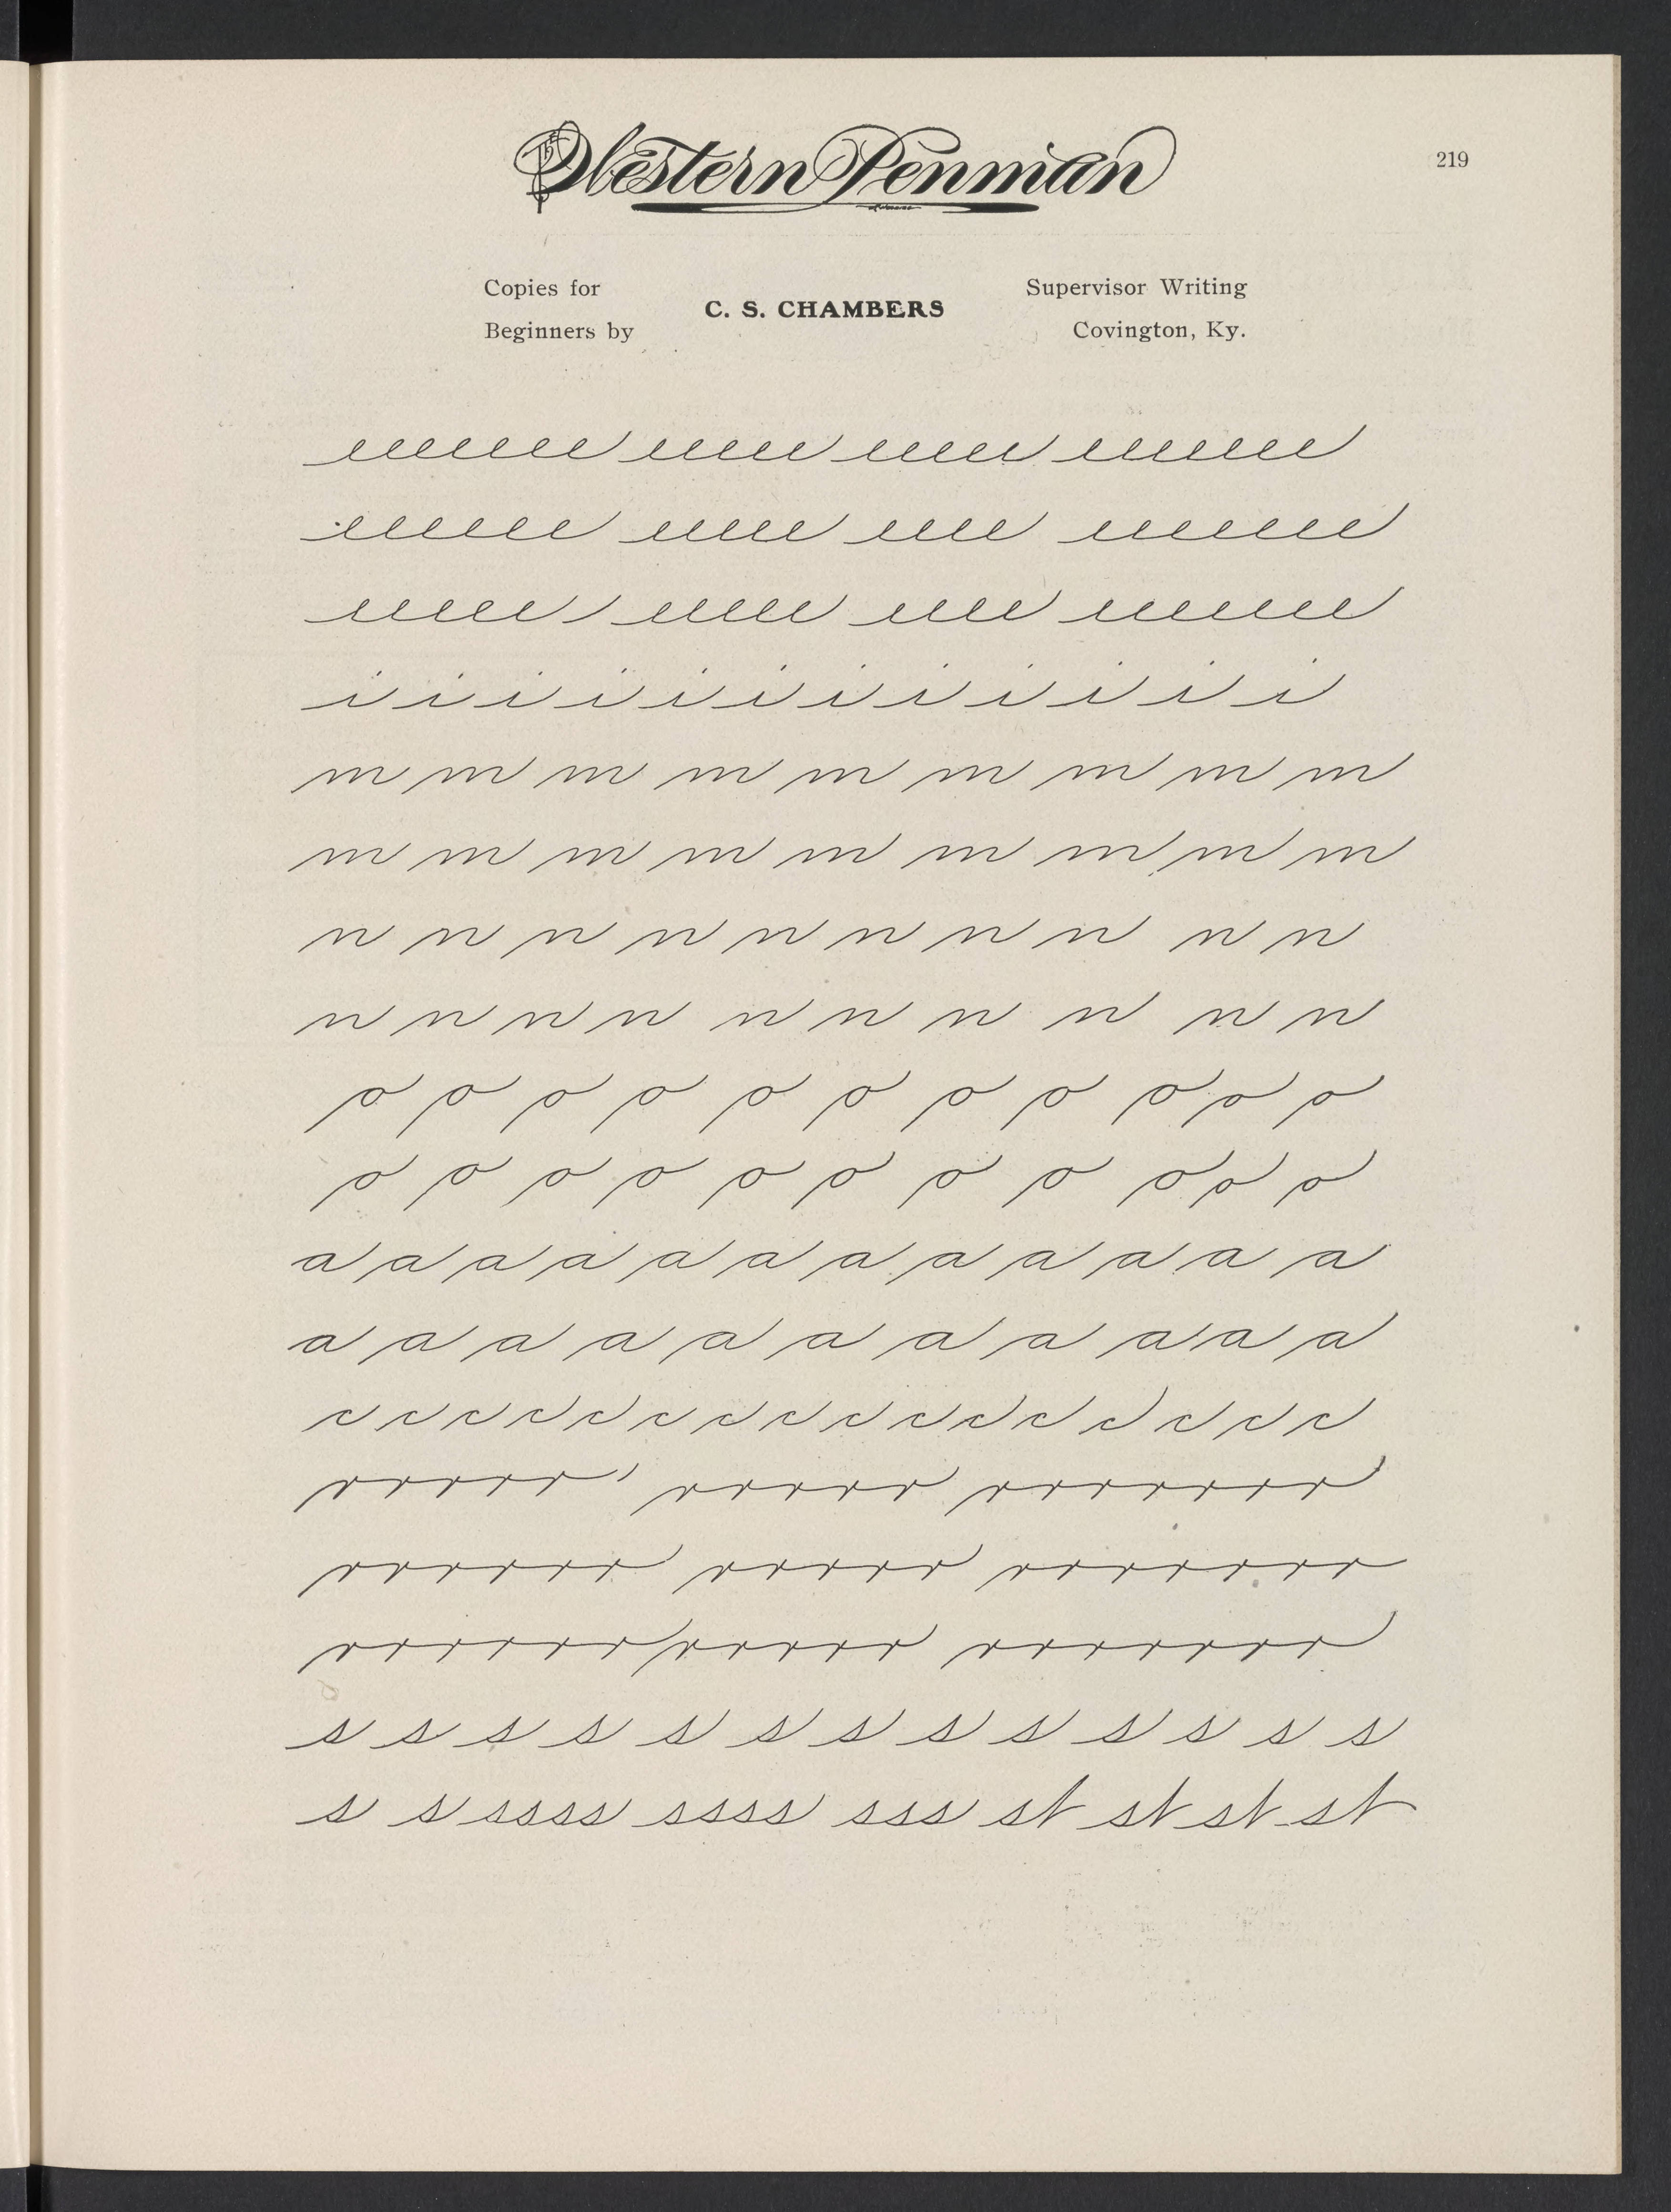 The Western Penman
219
Copies for Beginners by
C. S. CHAMBERS
Supervisor Writing Covington, Ky.
eeeeeee eeeee eeeee eeeeeee
eeeeee eeeee eeee eeeeeee
eeeee eeeee eeee eeeeeee
i i i i i i i i i i i i
m m m m m m m m m
m m m m m m m m m
n n n n n n n n n n
n n n n n n n n n n
o o o o o o o o o o o
o o o o o o o o o o o
a a a a a a a a a a a a
a a a a a a a a a a a
c c c c c c c c c c c c c c c c
rrrrr rrrrr rrrrrrr
rrrrrr rrrrr rrrrrrrr
rrrrrr rrrrr rrrrrrrr
s s s s s s s s s s s s s
s s ssss ssss sss st st st st